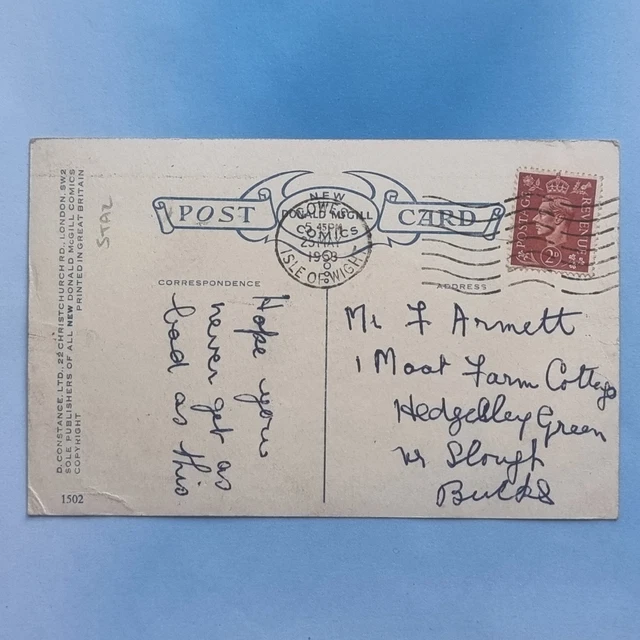 D. CONSTANCE, LTD., 22 CHRISTCHURCH RD., LONDON, SW2
SOLE PUBLISHERS OF ALL NEW DONALD McGILL COMICS
COPYRIGHT PRINTED IN GREAT BRITAIN
1502
STAZ
POST CARD
NEW
DONALD McGILL
COMICS
COWES
5.45PM
25 MAY
ISLE OF WIGHT
POSTAGE
REVENUE
2D
CORRESPONDENCE
ADDRESS
Hope you
never get as
bad as this
Mr F Armett
1 Moat Farm Cottage
Hedgerley Green
nr Slough
Bucks